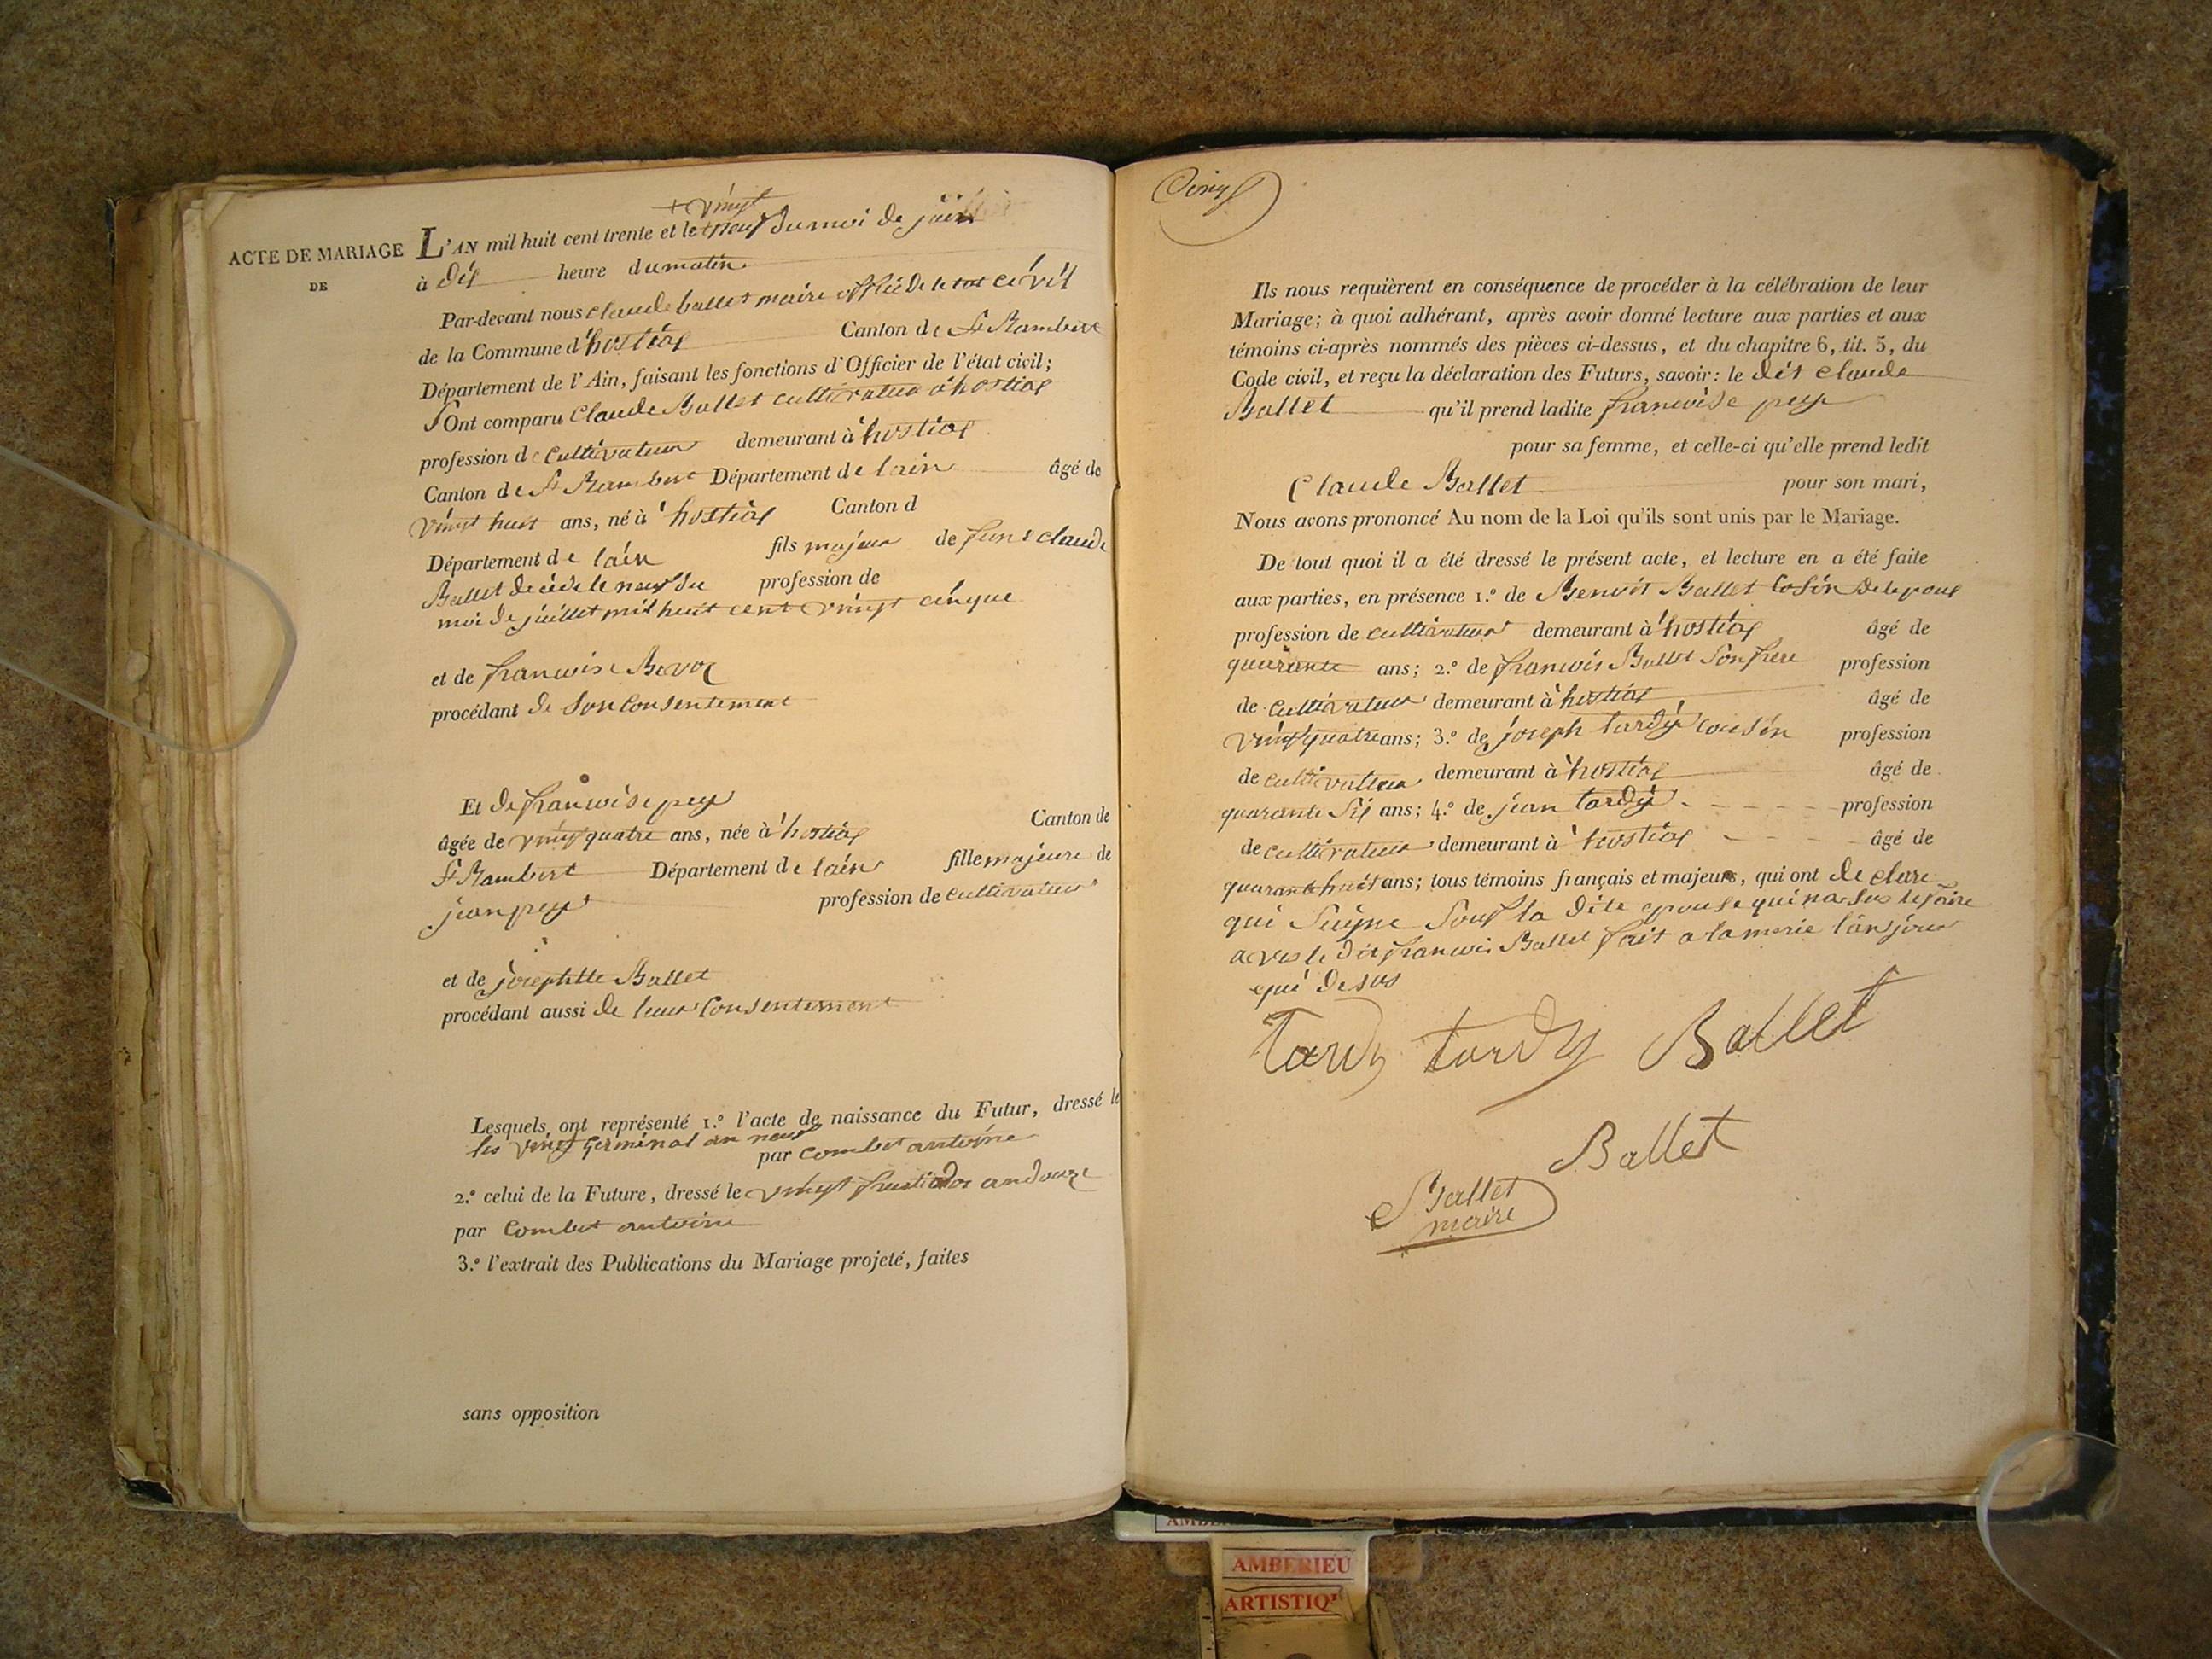 + vingt
ACTE DE MARIAGE
DE
L'AN mil huit cent trente et le + neuf du moi de juin
à dix heure du matin
Par-devant nous claude ballet maire civil
de la Commune d'hostias Canton de St Rambert
Département de l'Ain, faisant les fonctions d'Officier de l'état civil;
Ont comparu Claude Ballet cultivateur a hostias
profession de cultivateur demeurant à hostias
Canton de St Rambert Département de lain âgé de
vingt huit ans, né à hostias Canton d
Département de lain fils majeur de claude
Ballet decede le neuf du profession de
moi de juillet mil huit cent vingt cinque
et de francoise
procédant de son consentement
Et de francoise peye
âgée de vingt quatre ans, née à hostias Canton de
St Rambert Département de lain fille majeure de
jean peye profession de cultivateur
et de josephtte Ballet
procédant aussi de leur consentement
Lesquels ont représenté 1.° l'acte de naissance du Futur, dressé le
les vingt germinal an neuf
par combet antoine
2.° celui de la Future, dressé le vingt an douze
par combet antoine
3.° l'extrait des Publications du Mariage projeté, faites
sans opposition
Ils nous requièrent en conséquence de procéder à la célébration de leur
Mariage; à quoi adhérant, après avoir donné lecture aux parties et aux
témoins ci-après nommés des pièces ci-dessus, et du chapitre 6, tit. 5, du
Code civil, et reçu la déclaration des Futurs, savoir: le dit claude
Ballet qu'il prend ladite francoise peye
pour sa femme, et celle-ci qu'elle prend ledit
Claude Ballet pour son mari,
Nous avons prononcé Au nom de la Loi qu'ils sont unis par le Mariage.
De tout quoi il a été dressé le présent acte, et lecture en a été faite
aux parties, en présence 1.° de Benoit Ballet cosin de lepous
profession de cultivateur demeurant à hostias âgé de
quarante ans; 2.° de francois Ballet son frere profession
de cultivateur demeurant à hostias âgé de
vingt quatre ans; 3.° de joseph tardy cousin profession
de cultivateur demeurant à hostias âgé de
quarante six ans; 4.° de jean tardy profession
de cultivateur demeurant à hostias âgé de
quarante huit ans; tous témoins français et majeurs, qui ont declare
qui la dite epouse qui na
le dit francois Ballet fait a la marie lan jour
que desus
Tardy tardy Ballet
Ballet
Ballet
maire
AMBERIEU
ARTISTIQ